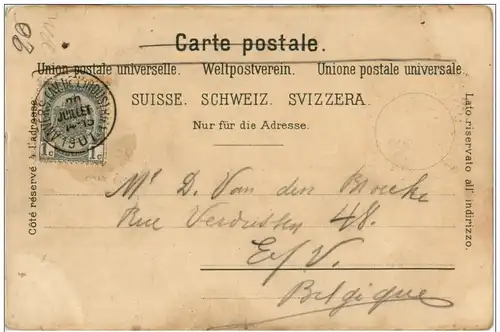 20
Carte postale.
Union postale universelle. Weltpostverein. Unione postale universale.
SUISSE. SCHWEIZ. SVIZZERA.
Nur für die Adresse.
Côté réservé à l'adresse.
Lato riservato all' indirizzo.
20
JUILLET
1901
1c 1c
Mr D. Van den Broucke
Rue 48.
E/V.
Belgique